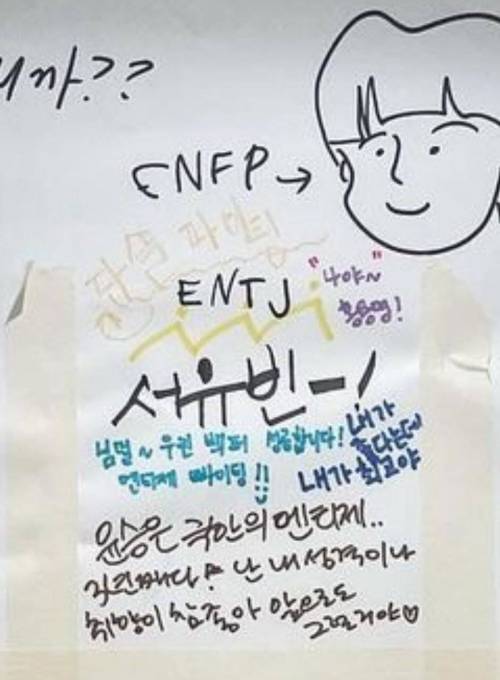 까??
ENFP →
단솔 파이팅
ENTJ
"나야~"
홍승명!
서유빈-!
님덜~ 우린 백퍼 성공합니다!
엔티제 빠이팅!!
내가
좋다는데
내가 최고야
윤승은 극한의 엔티제..
난 내 성격이나
취향이 참 좋아 앞으로도
그럴거야♡